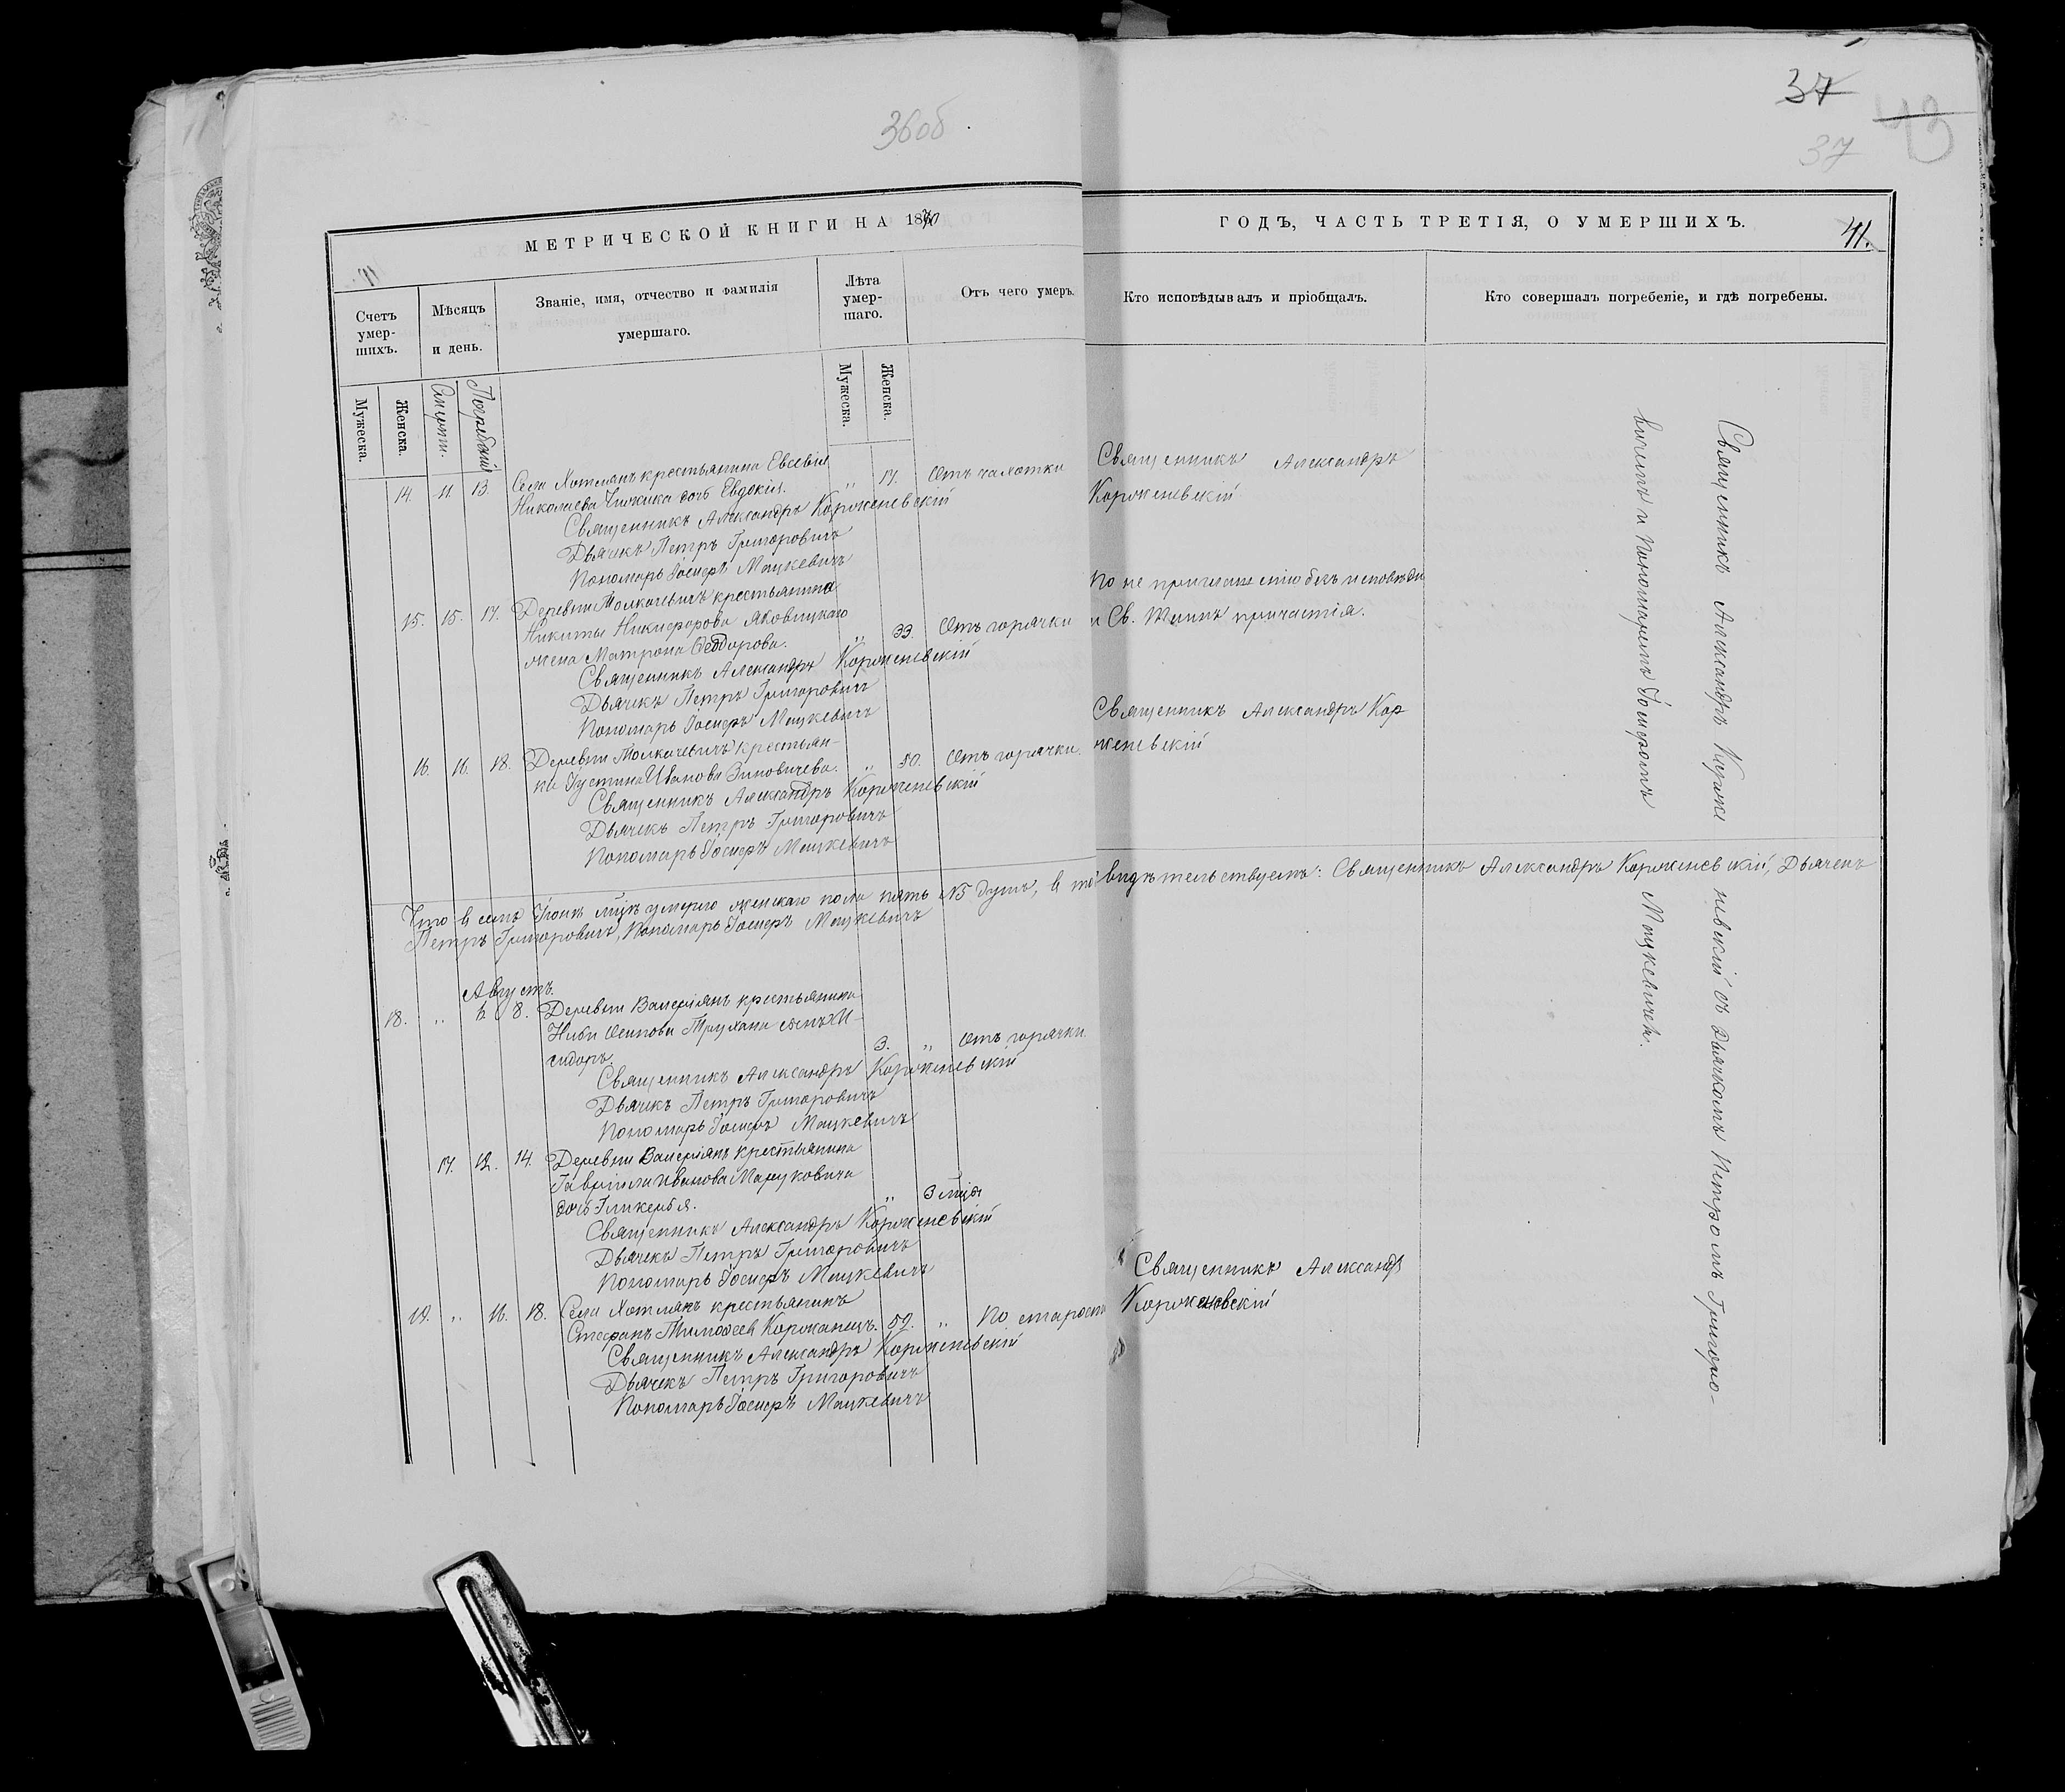 36об.
37
37
43
МЕТРИЧЕСКОЙ КНИГИ НА 1870
ГОДЪ, ЧАСТЬ ТРЕТІЯ, О УМЕРШИХЪ.
41.
Счетъ умер-
шихъ.
Мѣсяцъ
и день.
Званіе, имя, отчество и фамилія
умершаго.
Лѣта
умер-
шаго.
Отъ чего умеръ.
Кто исповѣдывалъ и пріобщалъ.
Кто совершалъ погребеніе, и гдѣ погребены.
Мужеска.
Женска.
Смерти.
Погребенія
Мужеска.
Женска.
14. 11. 13. Села Хотлянъ крестьянина Евсевія
Николаева Чижика дочь Евдокія. „ 17. Отъ чахотки
Священникъ Александръ Корженевскій
Дьячекъ Петръ Григоровичъ
Пономарь Іосифъ Мацкевичъ
Священникъ Александръ
Корженевскій
15. 15. 17. Деревни Толкачевичъ крестьянина
Никиты Никифорова Яковицкаго
жена Матрона Ѳеодорова. „ 33. Отъ горячки
Священникъ Александръ Корженевскій
Дьячекъ Петръ Григоровичъ
Пономарь Іосифъ Мацкевичъ
По не приглашенію безъ исповѣди
и Св. Таинъ причастія.
16. 16. 18. Деревни Толкачевичъ крестьян-
ка Іустина Иванова Зиновичева. „ 50. Отъ горячки.
Священникъ Александръ Корженевскій
Дьячекъ Петръ Григоровичъ
Пономарь Іосифъ Мацкевичъ
Священникъ Александръ Кор
женевскій
Что в семъ Іюлѣ м-цѣ умерло женскаго пола пять №5 душъ, в томъ свидѣтельствуемъ: Священникъ Александръ Корженевскій, Дьячекъ
Петръ Григоровичъ, Пономарь Іосифъ Мацкевичъ
Августъ.
18. „ 6. 8. Деревни Валеріянъ крестьянина
Осипова Трухана сынъ И-
сидоръ. 3. „ Отъ горячки.
Священникъ Александръ Корженевскій
Дьячекъ Петръ Григоровичъ
Пономарь Іосифъ Мацкевичъ
17. 12. 14. Деревни Валеріянъ крестьянина
Гавріила Иванова Маруковича
дочь Гликерія. „ 3 м-ца
Священникъ Александръ Корженевскій
Дьячекъ Петръ Григоровичъ
Пономарь Іосифъ Мацкевичъ
19. „ 16. 18. Села Хотлянъ крестьянинъ
Стефанъ Тимоѳеевъ Коржанецъ. 59. „ По старости
Священникъ Александръ Корженевскій
Дьячекъ Петръ Григоровичъ
Пономарь Іосифъ Мацкевичъ
Священникъ Александръ
Корженевскій
Священникъ Александръ Корженевскій съ Дьячкомъ Петромъ Григоро-
вичемъ и Пономаремъ Іосифомъ Мацкевичемъ.